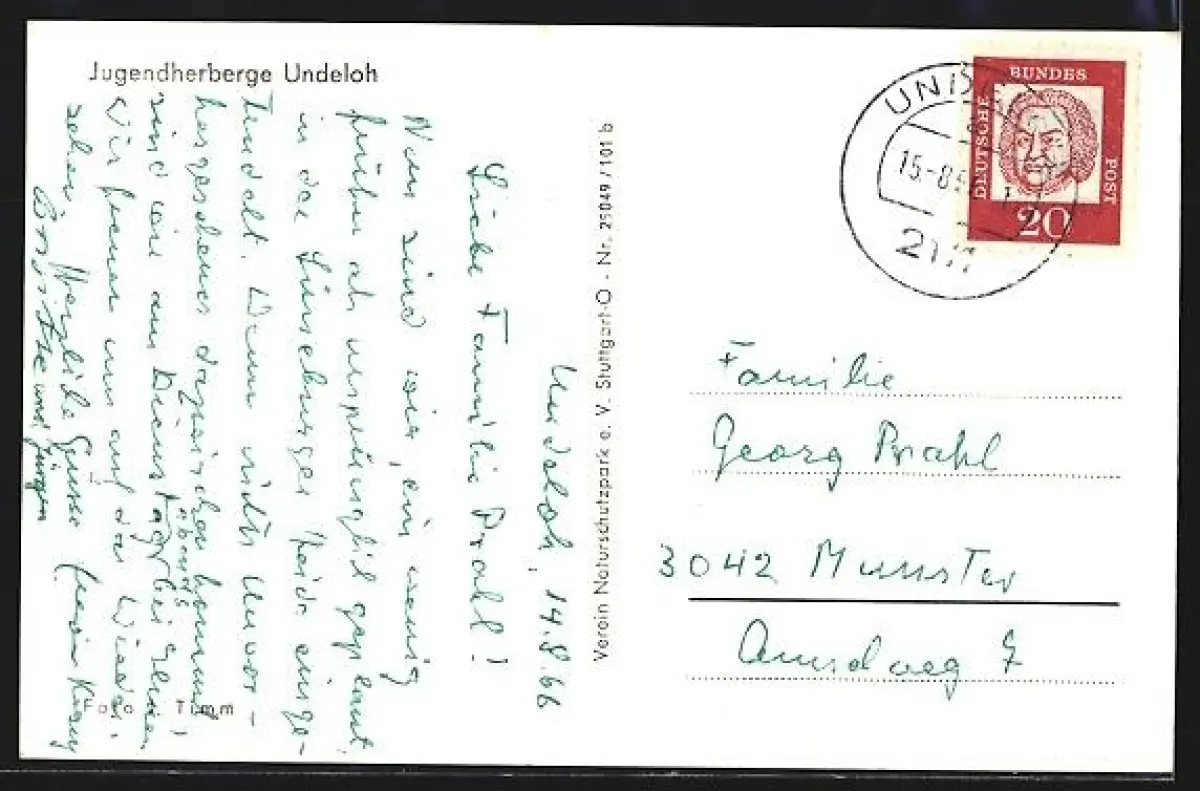 Jugendherberge Undeloh
Undeloh, 14.8.66
Liebe Familie Prahl!
Nun sind wir, ein wenig
früher als ursprünglich geplant,
in der Lüneburger Heide einge-
trudelt. Wenn nichts Unvor-
hergesehenes dazwischen kommt,
sind wir am Dienstag abends bei Ihnen!
Wir freuen uns auf das Wieder-
sehen. Herzliche Grüsse
und Jürgen
Foto Timm
Verein Naturschutzpark e. V. Stuttgart-O - Nr. 25049/101 b
UND
15.-8.
21
DEUTSCHE
BUNDES
POST
20
Familie
Georg Prahl
3042 Munster
7